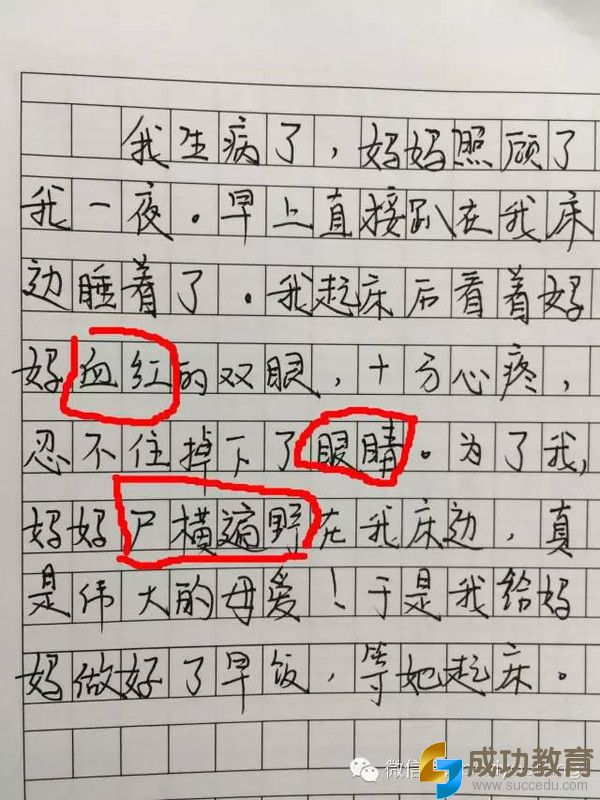 我生病了，妈妈照顾了
我一夜。早上直接趴在我床
边睡着了。我起床后看着妈
妈血红的双眼，十分心疼，
忍不住掉下了眼睛。为了我，
妈妈尸横遍野在我床边，真
是伟大的母爱！于是我给妈
妈做好了早饭，等她起床。
微信
成功教育
www.succedu.com